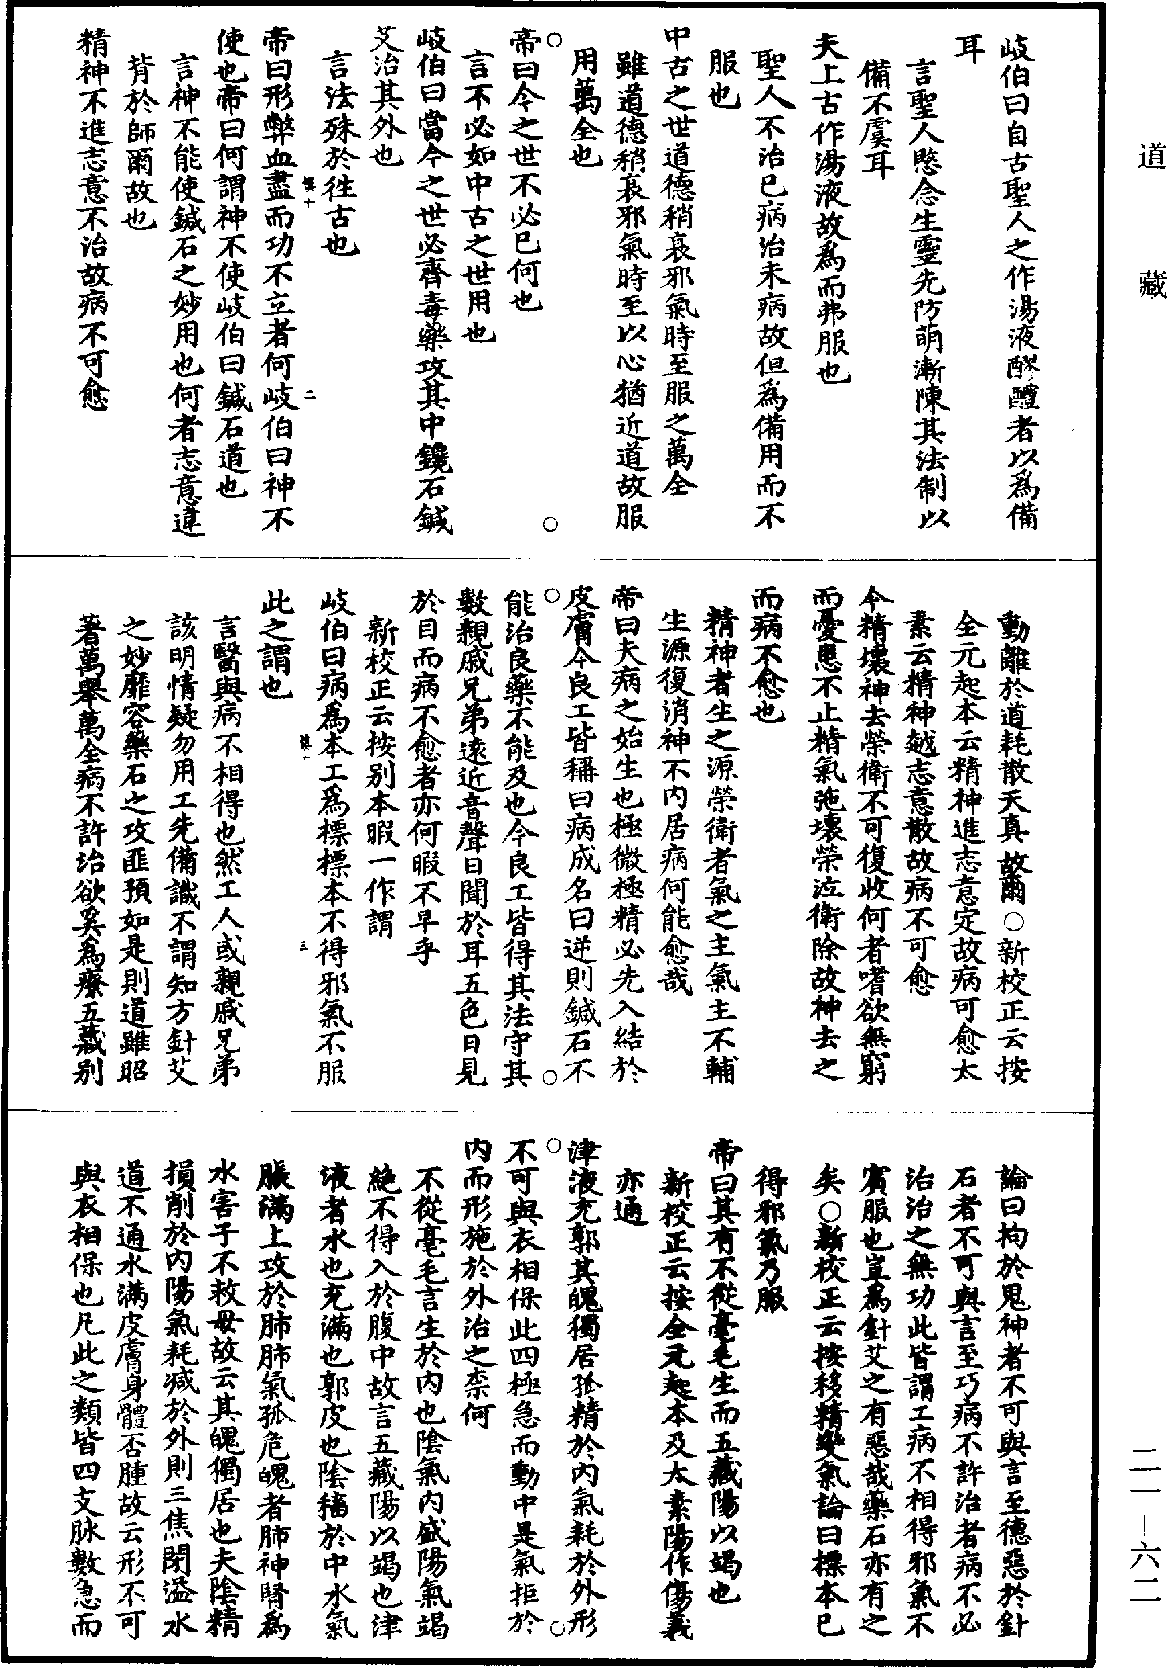 道藏
岐伯曰自古聖人之作湯液醪醴者以爲備
耳
言聖人愍念生靈先防萌漸陳其法制以
備不虞耳
夫上古作湯液故爲而弗服也
聖人不治已病治未病故但爲備用而不
服也
中古之世道德稍衰邪氣時至服之萬全
雖道德稍衰邪氣時至以心猶近道故服
用萬全也
帝曰今之世不必已何也
言不必如中古之世用也
岐伯曰當今之世必齊毒藥攻其中鑱石鍼
艾治其外也
言法殊於徃古也
帝曰形弊血盡而功不立者何岐伯曰神不
使也帝曰何謂神不使岐伯曰鍼石道也
言神不能使鍼石之妙用也何者志意違
背於師爾故也
精神不進志意不治故病不可愈
動離於道耗散天真故爾○新校正云按
全元起本云精神進志意定故病可愈太
素云精神越志意散故病不可愈
今精壞神去榮衛不可復收何者嗜欲無窮
而憂患不止精氣弛壞榮泣衛除故神去之
而病不愈也
精神者生之源榮衛者氣之主氣主不輔
生源復消神不内居病何能愈哉
帝曰夫病之始生也極微極精必先入結於
皮膚今良工皆稱曰病成名曰逆則鍼石不
能治良藥不能及也今良工皆得其法守其
數親戚兄弟遠近音聲日聞於耳五色日見
於目而病不愈者亦何暇不早乎
新校正云按别本暇一作謂
岐伯曰病爲本工爲標標本不得邪氣不服
此之謂也
言醫與病不相得也然工人或親戚兄弟
該明情疑勿用工先備識不謂知方針艾
之妙靡容藥石之攻匪預如是則道雖昭
著萬舉萬全病不許治欲奚爲療五藏别
論曰拘於鬼神者不可與言至德惡於針
石者不可與言至巧病不許治者病不必
治治之無功此皆謂工病不相得邪氣不
賓服也豈爲針艾之有惡哉藥石亦有之
矣○新校正云按移精變氣論曰標本已
得邪氣乃服
帝曰其有不從毫毛生而五藏陽以竭也
新校正云按全元起本及太素陽作傷義
亦通
津液充郭其魄獨居孤精於内氣耗於外形
不可與衣相保此四極急而動中是氣拒於
内而形施於外治之柰何
不從毫毛言生於内也陰氣内盛陽氣竭
絶不得入於腹中故言五藏陽以竭也津
液者水也充滿也郭皮也陰穡於中水氣
脹滿上攻於肺肺氣孤危魄者肺神腎爲
水害子不救母故云其魄獨居也夫陰精
損削於内陽氣耗減於外則三焦閉溢水
道不通水滿皮膚身體否腫故云形不可
與衣相保也凡此之類皆四支脉數急而
二一—六二